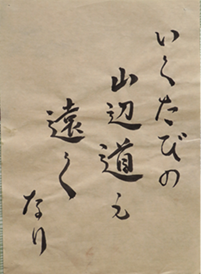 いくたびの
山辺道も
遠く
なり